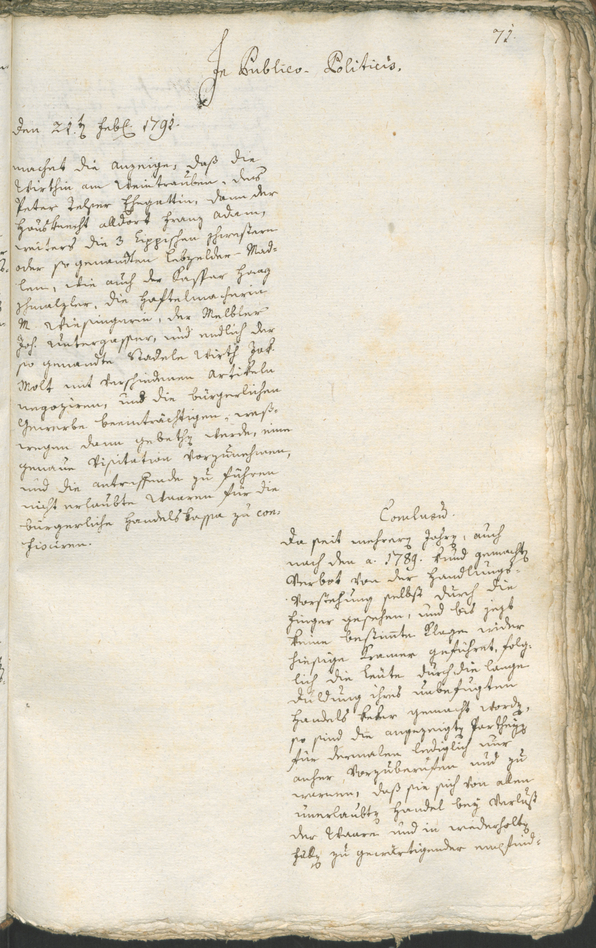 71.
In Publico-Politicis.
den 21.t Febr. 1791.
machet die Anzeige, daß die
Wirthin am Weintrauben, des
Peter Ehegattin, dann der
Hausknecht alldort Franz Adam,
weiters die 3 Lippischen Schwestern
oder so genandten Lebzelder-Mad-
len, wie auch der Kaspar Haag
Schmalzler, die Haftelmacherin
M. Wiesingerin, der Melbler
Joh. Untergasser, und endlich der
so genandte Stadele Wirth Jak.
Molt mit verschiedenen Artikeln
negoziren, und die bürgerlichen
Gewerbe beeinträchtigen, weß-
wegen dann gebethen werde, eine
genaue Visitation vorzunehmen,
und die antreffende zu führen
nicht erlaubte Waaren für die
bürgerliche Handelskassa zu con-
fisciren.
Conclusum.
Da seit mehreren Jahren, auch
nach den a. 1789. kund gemachten
Verbot von der Handlungs-
vorstehung selbst durch die
Finger gesehen, und bis jezt
keine bestimte Klage wider
hiesige Kramer geführet, folg-
lich die Leute durch die lange
Duldung ihres unbefugten
Handels keker gemacht worden,
so sind die angezeigten Partheyen
für dermalen lediglich nur
anher vorzuberufen und zu
warnen, daß sie sich von allen
unerlaubten Handel bey Verlust
der Waare und in wiederholten
Fällen zu gewärtigender empfind-